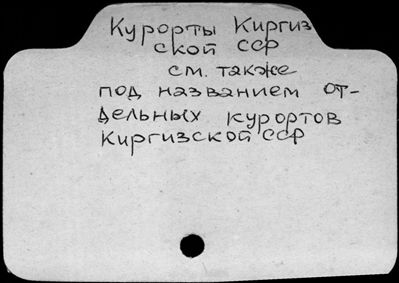 Курорты Киргиз
ской ССР
см. также
под названием от-
дельных курортов
Киргизской ССР